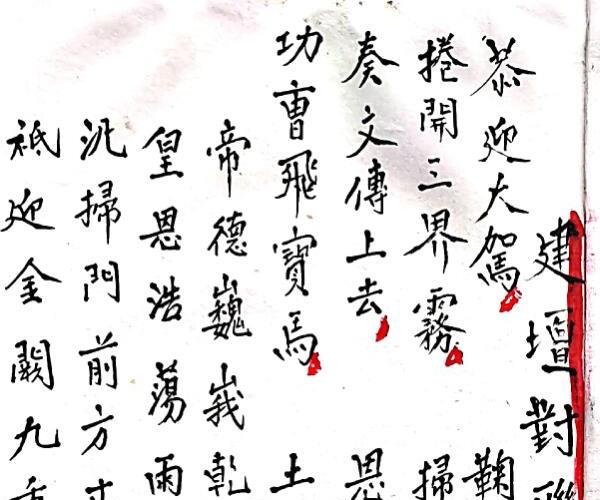 建壇對聯
恭迎大駕 鞠
捲開三界霧 掃
奏文傳上去 恩
功曹飛寶馬 土
帝德巍峩乾
皇恩浩蕩雨
汎掃門前方寸
祗迎金闕九重